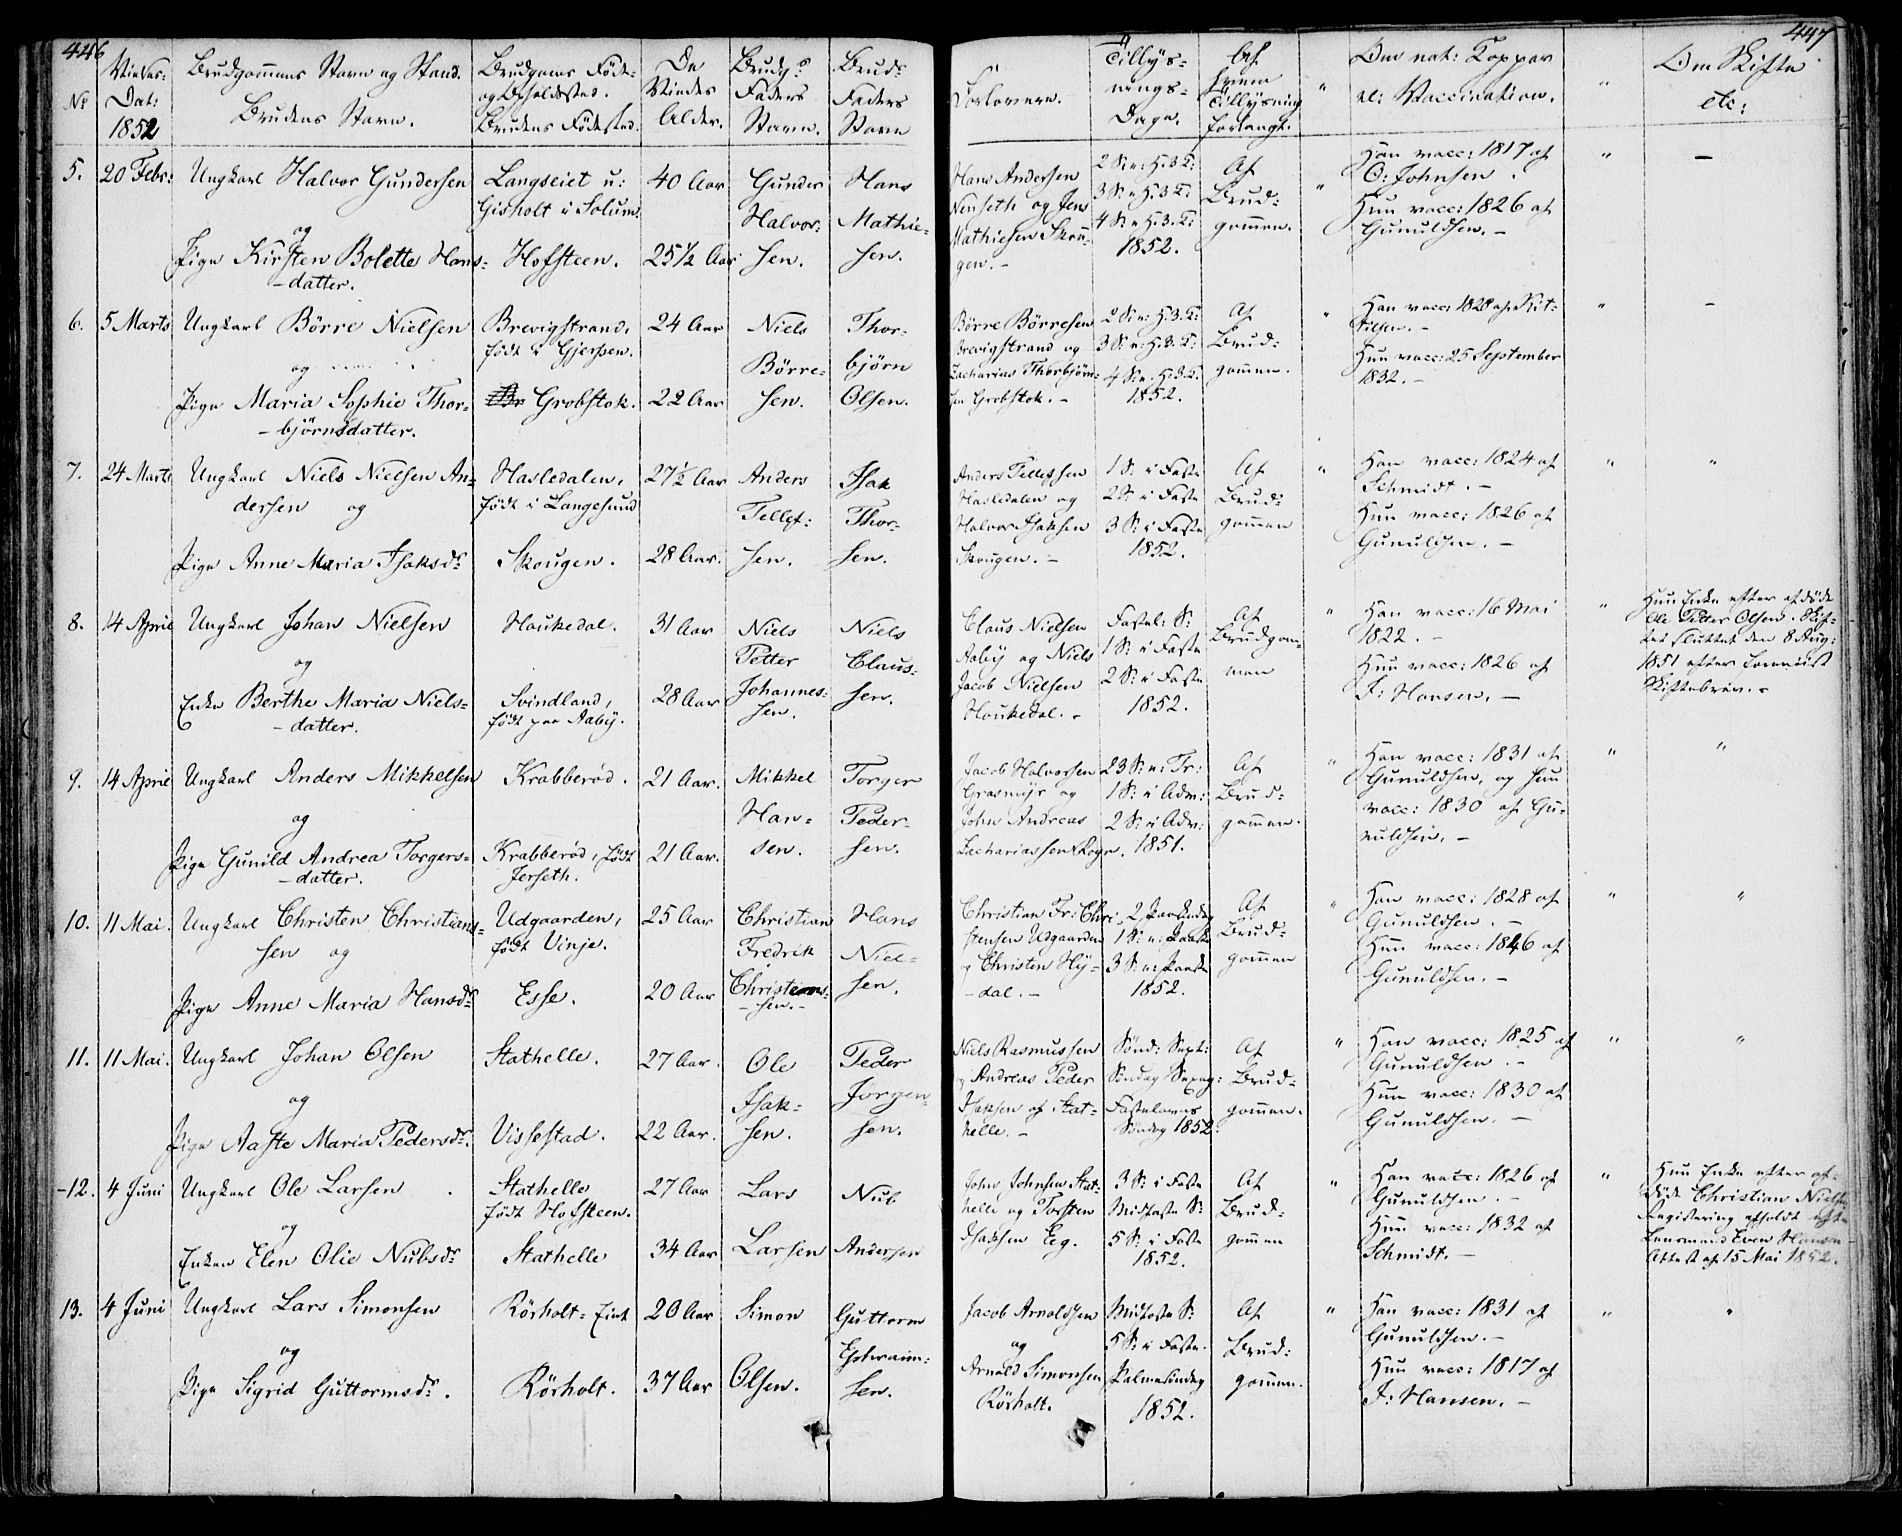 446
447
No
Vielses-
Dat:
1852
Brudgommens Navn og Stand.
Brudens Navn.
Brudgoms Føde-
og Opholdssted.
Brudens Fødested.
De
Viedes
Alder.
Brudgs
Faders
Navn.
Bruds
Faders
Navn
Forlovere.
Tillys-
nings-
Dage.
Af
hvem
Tillysning
forlangt.
Om nat: Kopper
el: Vaccination.
Om Skifte
etc:
5.
20 Febr:
Ungkarl Halvor Gundersen
og
Pige Kirsten Bolette Hans-
-datter.
Langseiet u:
Gisholt i Solum.
Hofsteen.
40 Aar
25½ Aar
Gunder
Halvor-
sen.
Hans
Mathie-
sen.
Hans Andersen
Nenseth og Jens
Mathiesen Skou-
gen. -
2 S: e: H. 3 K:
3 S: e: H. 3 K:
4 S: e: H. 3. K:
1852.
Af
Brud-
gommen.
Han vacc: 1817 af
O: Johnsen.
Hun vacc: 1826 af
Gunuldsen. -
6.
5 Marts
Ungkarl Börre Nielsen
og
Pige Maria Sophie Thor-
-björnsdatter.
Brevigstrand,
født i Gjerpen.
Grobstok.
24 Aar
22 Aar
Niels
Börre-
sen.
Thor-
björn
Olsen.
Börre Börresen
Brevigstrand og
Zacharias Thorbjörn-
sen Grobstok. -
2 S: e: H. 3. K:
3 S: e: H. 3. K:
4 S: e: H. 3. K:
1852.
Af
Brud-
gommen.
Han vacc: 1828 af Kit-
tilsen. -
Hun vacc: 25 September
1832. -
7.
24 Marts
Ungkarl Niels Nielsen An-
dersen og
Pige Anne Maria Isaksdr
Hasledalen,
født i Langesund
Skougen.
27½ Aar
28 Aar.
Anders
Tellef-
sen.
Isak
Thor-
sen.
Anders Tellefsen
Hasledalen og
Halvor Isaksen
Skougen. -
1 S: i Faste
2 S: i Faste
3 S: i Faste
1852.
Af
Brud-
gommen
Han vacc: 1824 af
Schmidt. -
Hun vacc: 1826 af
Gunuldsen. -
8.
14 April
Ungkarl Johan Nielsen
og
Enke Berthe Maria Niels-
-datter.
Houkedal.
Svindland,
født paa Aaby.
31 Aar
28 Aar
Niels
Petter
Johannes-
sen.
Niels
Claus-
sen.
Claus Nielsen
Aaby og Niels
Jacob Nielsen
Houkedal. -
Fastel: S:
1 S: i Faste
2 S: i Faste
1852.
Af
Brudgom-
men
Han vacc: 16 Mai
1822. -
Hun vacc: 1826 af
J: Hansen. -
Hun Enke efter afdøde
Ole Petter Olsen. Skif-
tet sluttet den 8 Aug:
1851 efter
Skiftebrev. -
9.
14 April
Ungkarl Anders Mikkelsen
og
Pige Gunild Andrea Torgers-
-datter.
Krabberød.
Krabberød, født
Jerseth.
21 Aar.
21 Aar.
Mikkel
Han-
sen.
Torger
Peder-
sen.
Jacob Halvorsen
Grasmyr og
John Andreas
Zachariassen Rogn.
23 S: e: Tr:
1 S: i Adv:
2 S: i Adv:
1851.
Af
Brud-
gommen.
Han vacc: 1831 af
Gunuldsen, og hun
vacc: 1830 af Gu-
nuldsen. -
10.
11 Mai.
Ungkarl Christen Christians-
sen og
Pige Anne Maria Hansdr
Udgaarden,
født Vinje.
Esse.
25 Aar
20 Aar
Christian
Fredrik
Christians-
-sen. -
Hans
Niel-
sen.
Christian Fr: Chri-
stensen Udgaarden
og Christen Hy-
-dal. -
2 Paaskedag
1 S: e: Paaske
3 S: e: Paaske
1852.
Af
Brud-
gommen
Han vacc: 1828 af
Gunuldsen. -
Hun vacc: 1846 af
Gunuldsen. -
11.
11 Mai.
Ungkarl Johan Olsen
og
Pige Aaste Maria Pedersdr.
Stathelle.
Vissestad.
27 Aar.
22 Aar.
Ole
Isak-
sen.
Peder
Jörgen-
sen.
Niels Rasmussen
og Andreas Peder
Isaksen af Stat-
helle. -
Sönd: Sept:
Söndag Sexag:
Fastelavns
Söndag 1852.
Af
Brud-
gommen.
Han vacc: 1825 af
Gunuldsen. -
Hun vacc: 1830 af
Gunuldsen. -
-12.
4 Juni
Ungkarl Ole Larsen
og
Enken Elen Olie Nubsdr
Stathelle
født Hofsteen.
Stathelle
27 Aar
34 Aar
Lars
Larsen
Nub
Andersen
John Johnsen Stat-
helle og Torsten
Isaksen Eeg.
3 S: i Faste
Midfaste S:
5 S: i Faste
1852.
Af
Brud-
gommen
Han vacc: 1826 af
Gunuldsen. -
Hun vacc: 1832 af
Schmidt. -
Hun Enke efter af-
døde Christian Nielsen
Registering afholdt efter
Lensmand Even Hansen
Attest af 15 Mai 1852.
13.
4 Juni
Ungkarl Lars Simonsen
og
Pige Sigrid Guttormsdr.
Rörholt-Eiet
Rörholt.
20 Aar
37 Aar
Simon
Olsen.
Guttorm
Ephraim-
sen.
Jacob Arnoldsen
og
Arnold Simonsen
Rörholt.
Midfaste S:
5 S: i Faste.
Palmesöndag
1852.
Af
Brud-
gommen.
Han vacc: 1831 af
Gunuldsen. -
Hun vacc: 1817 af
J: Hansen. -